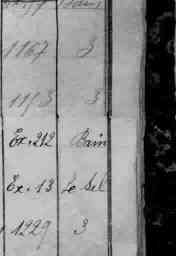 1167 3
1193 3
Ex. 212 Bain
Ex. 13 Le Sel
1229 3